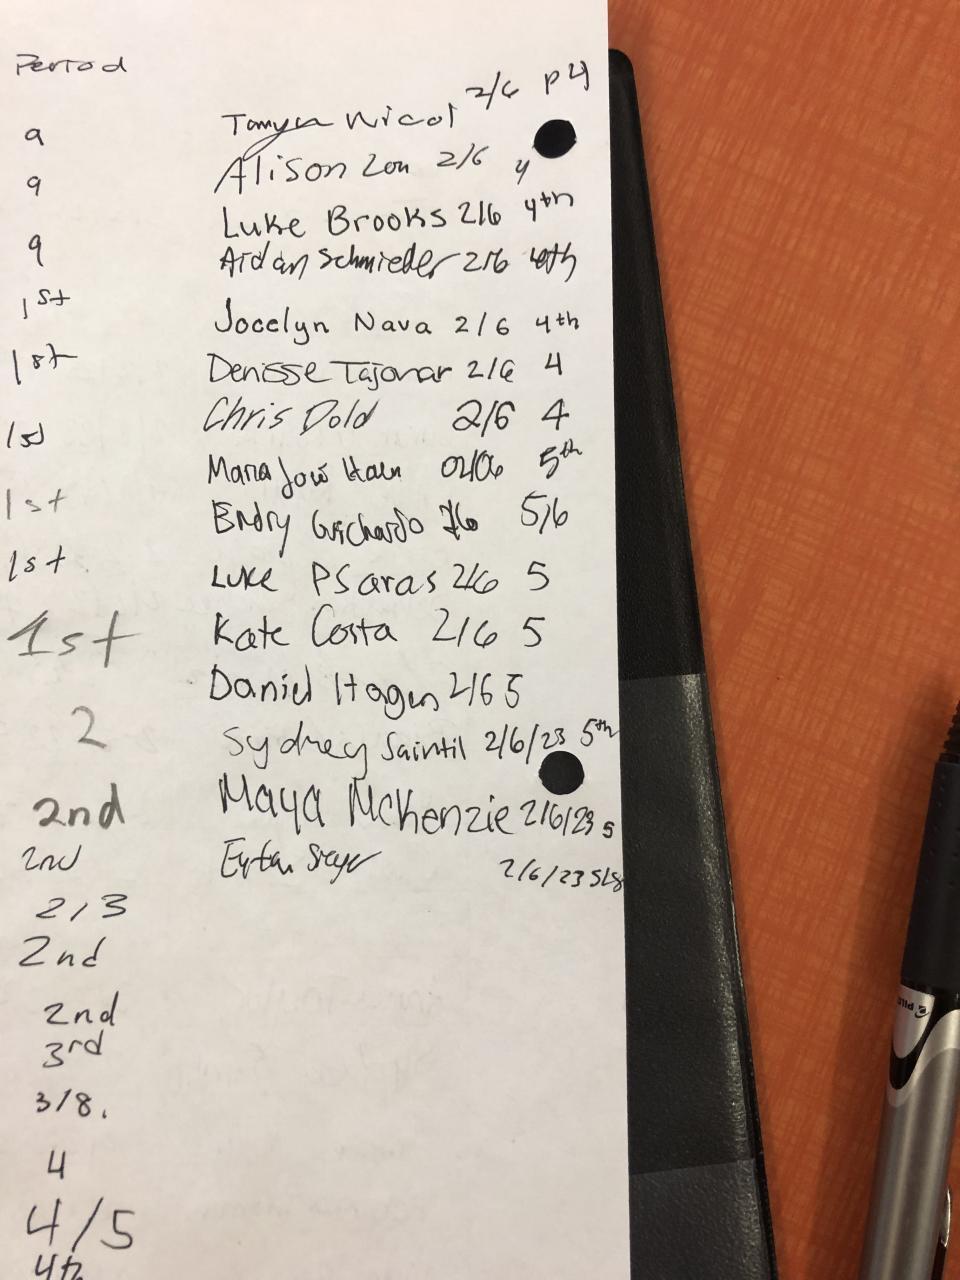 Period
9
9
9
1st
1st
1st
1st
1st
1st
2
2nd
2nd
2/3
2nd
2nd
3rd
3/8.
4
4/5
4th
Nicol 2/6 P4
Alison Zou 2/6 4
Luke Brooks 2/6 4th
Aidan Schmieder 2/6
Jocelyn Nava 2/6 4th
Denisse Tajonar 2/6 4
Chris Dold 2/6 4
Maria José 02/06 5th
Endry Guichardo 5/6
Luke Psaras 2/6 5
Kate Costa 2/6 5
Daniel Hagen 2/6 5
Sydney Saintil 2/6/23 5th
Maya McKenzie 2/6/23 5
2/6/23
PILOT